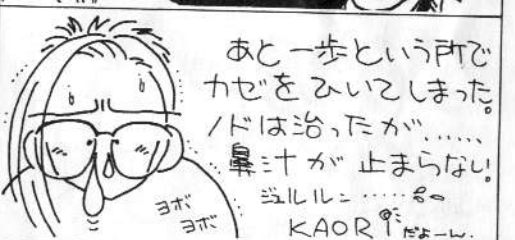 あと一歩という所で
カゼをひいてしまった。
ノドは治ったが……
鼻汁が止まらない!
ジュルルン……
ヨボ
ヨボ
KAORIだよーん.